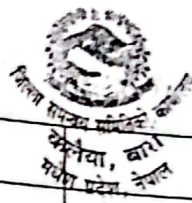 जिल्ला समन्वय समितिको कार्यालय
कलैया, बारा
मधेश प्रदेश, नेपाल